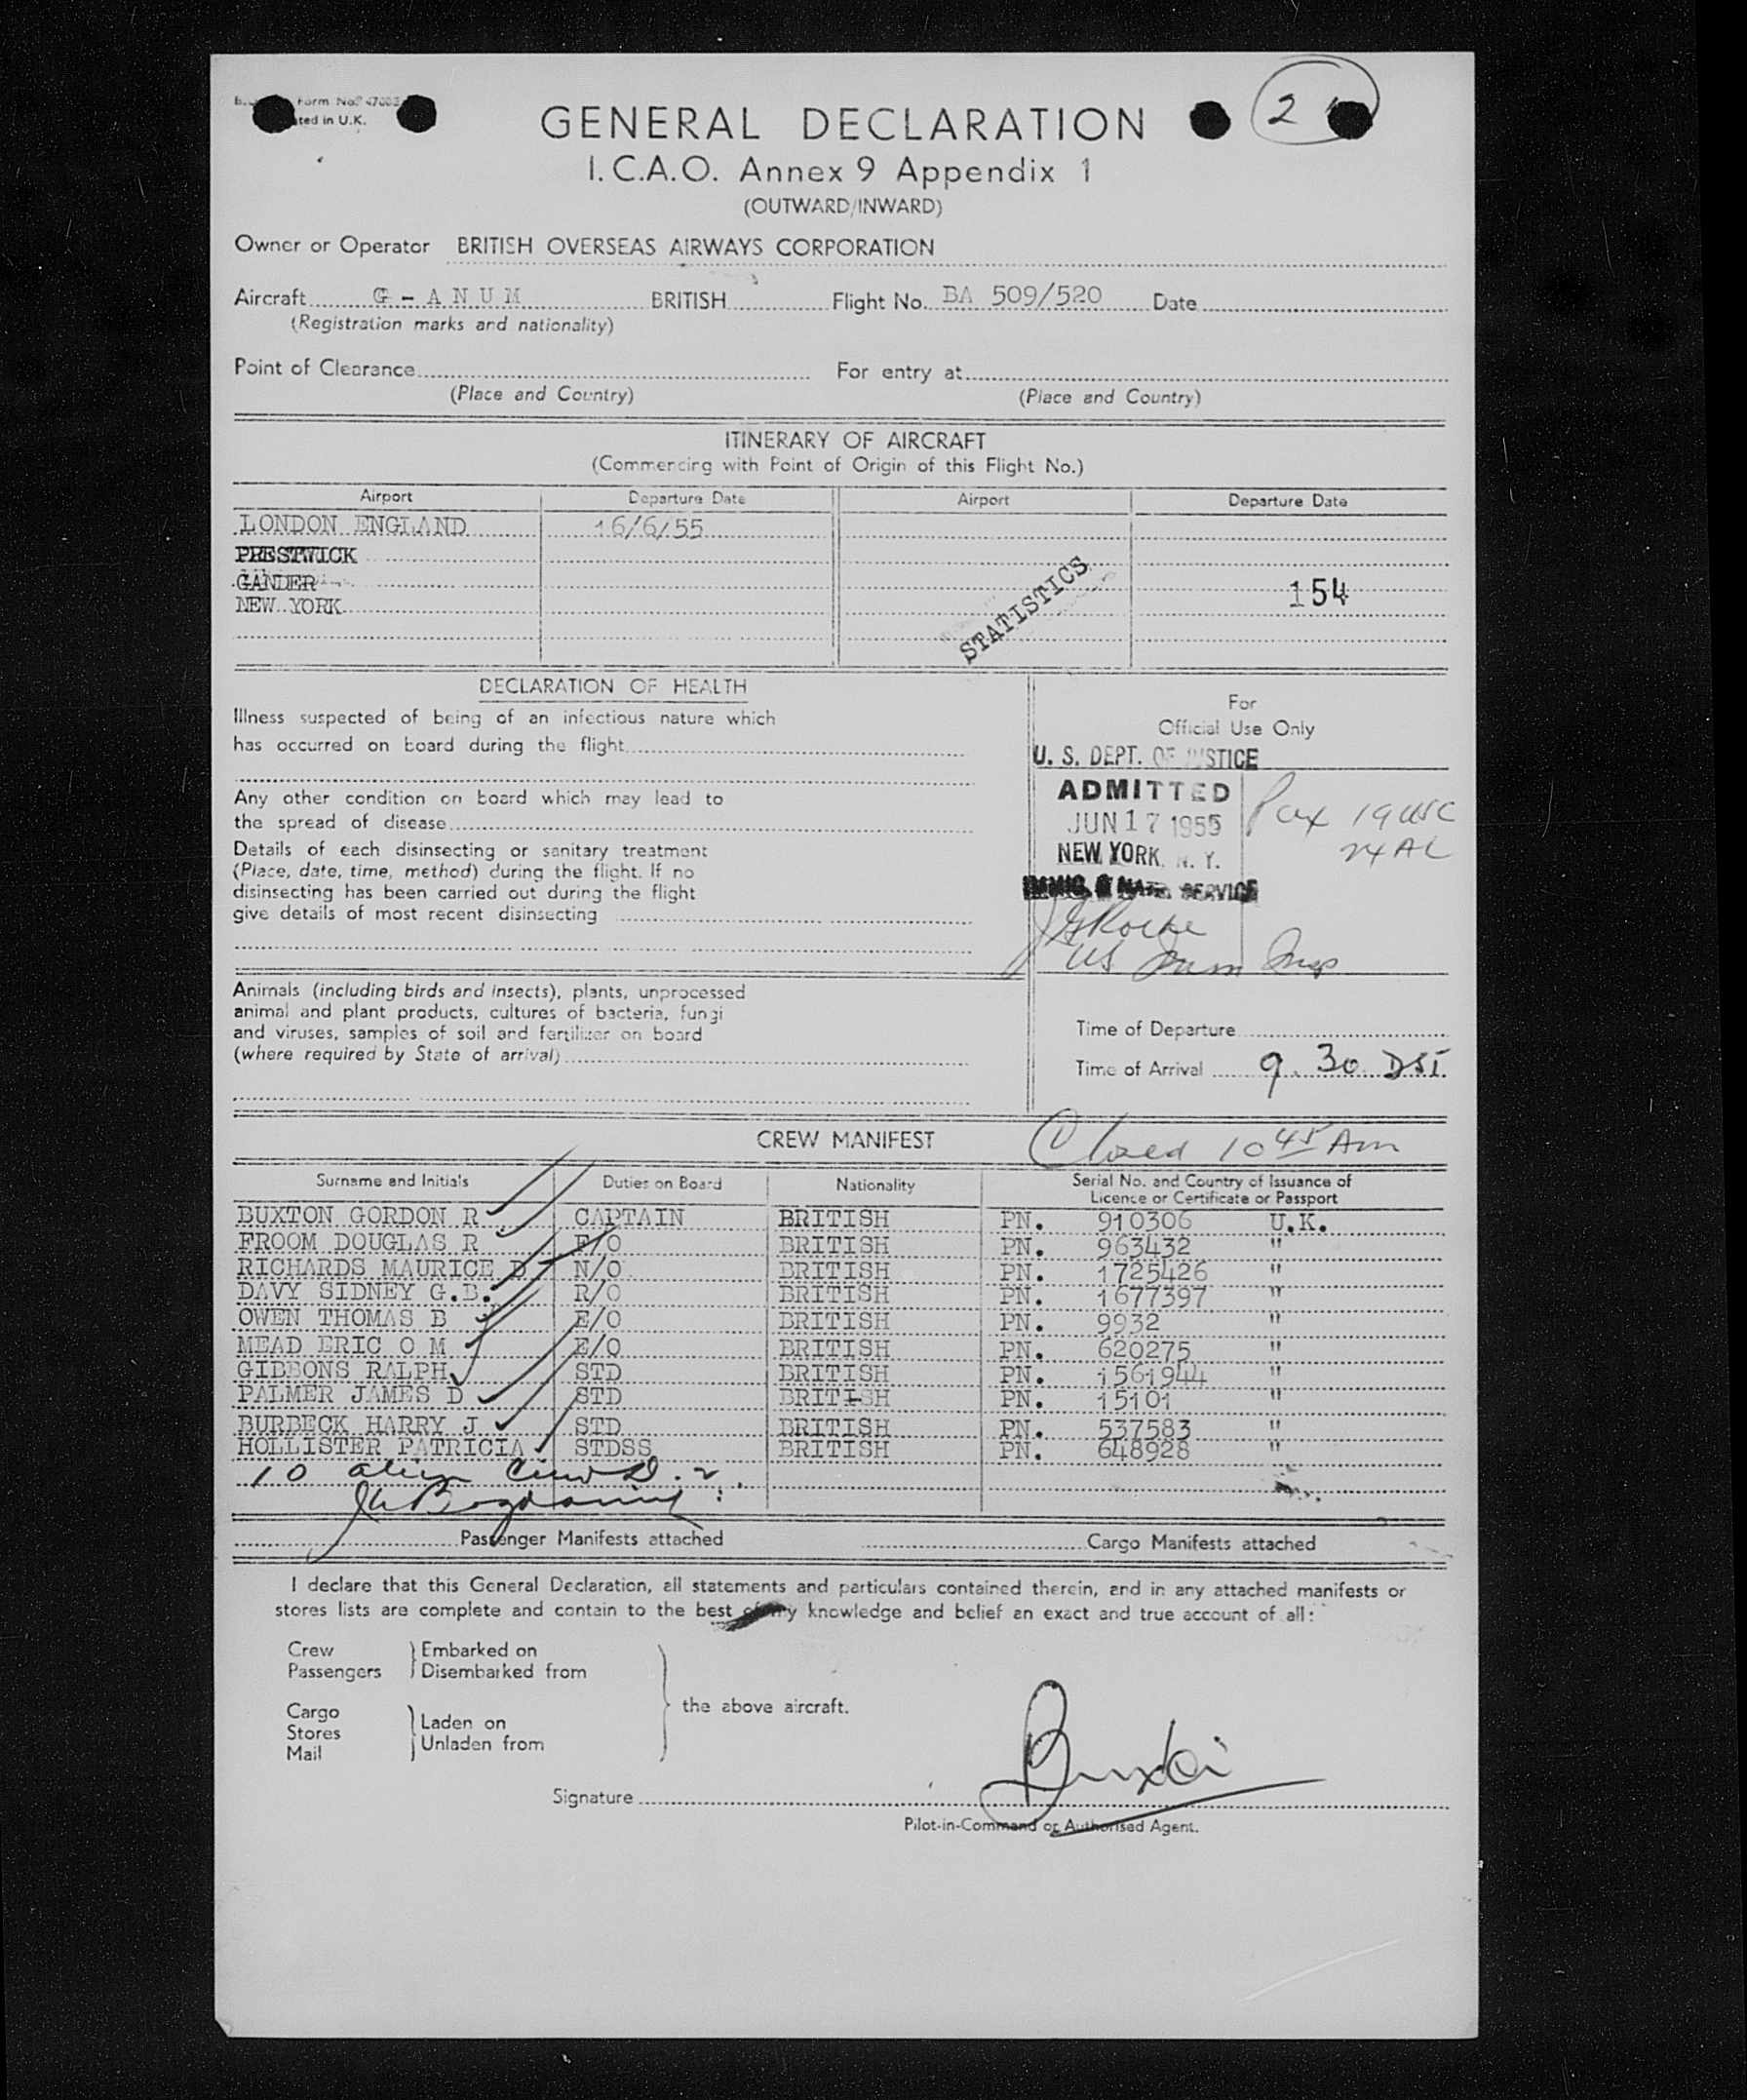 Form No. 47003
ted in U.K.
2
GENERAL DECLARATION
I.C.A.O. Annex 9 Appendix 1
(OUTWARD/INWARD)
Owner or Operator BRITISH OVERSEAS AIRWAYS CORPORATION
Aircraft G - A N U M BRITISH Flight No. BA 509/520 Date
(Registration marks and nationality)
Point of Clearance For entry at
(Place and Country) (Place and Country)
ITINERARY OF AIRCRAFT
(Commencing with Point of Origin of this Flight No.)
Airport Departure Date Airport Departure Date
LONDON ENGLAND 16/6/55
PRESTWICK
GANDER
154
NEW YORK
STATISTICS
DECLARATION OF HEALTH
Illness suspected of being of an infectious nature which
has occurred on board during the flight
Any other condition on board which may lead to
the spread of disease
Details of each disinsecting or sanitary treatment
(Place, date, time, method) during the flight. If no
disinsecting has been carried out during the flight
give details of most recent disinsecting
For
Official Use Only
U. S. DEPT. OF JUSTICE
ADMITTED
JUN 17 1955
NEW YORK, N. Y.
IMMIG. & NATZ. SERVICE
Pax 19 USC
24 AL
US Imm Insp
Animals (including birds and insects), plants, unprocessed
animal and plant products, cultures of bacteria, fungi
and viruses, samples of soil and fertilizer on board
(where required by State of arrival)
Time of Departure
Time of Arrival 9.30 DST
CREW MANIFEST Closed 10 45 Am
Surname and Initials Duties on Board Nationality Serial No. and Country of Issuance of
Licence or Certificate or Passport
BUXTON GORDON R CAPTAIN BRITISH PN. 910306 U.K.
FROOM DOUGLAS R F/O BRITISH PN. 963432 "
RICHARDS MAURICE D N/O BRITISH PN. 1725426 "
DAVY SIDNEY G.B. R/O BRITISH PN. 1677397 "
OWEN THOMAS B E/O BRITISH PN. 9932 "
MEAD ERIC O M E/O BRITISH PN. 620275 "
GIBBONS RALPH STD BRITISH PN. 1561944 "
PALMER JAMES D STD BRITISH PN. 15101 "
BURBECK HARRY J STD BRITISH PN. 537583 "
HOLLISTER PATRICIA STDSS BRITISH PN. 648928 "
10 alien Crew D.2.
Passenger Manifests attached Cargo Manifests attached
I declare that this General Declaration, all statements and particulars contained therein, and in any attached manifests or
stores lists are complete and contain to the best of my knowledge and belief an exact and true account of all:
Crew Embarked on
Passengers Disembarked from
the above aircraft.
Cargo Laden on
Stores
Mail Unladen from
Signature Buxton
Pilot-in-Command or Authorised Agent.